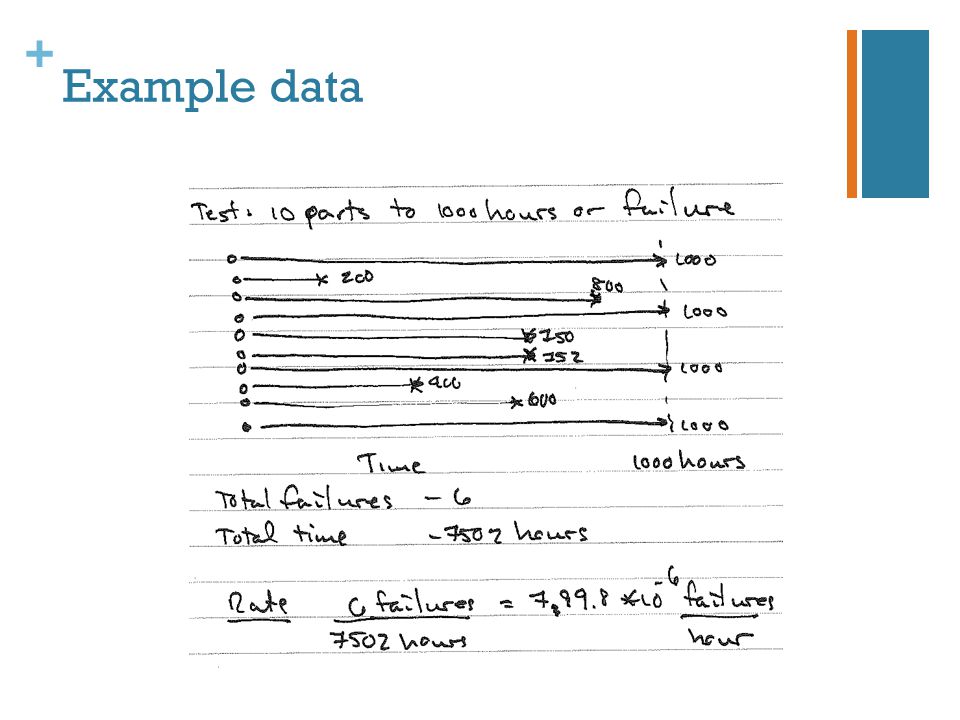 +
Example data
Test: 10 parts to 1000 hours or failure
1000
200
800
1000
750
752
1000
400
600
1000
Time 1000 hours
Total failures - 6
Total time - 7502 hours
Rate 6 failures = 7,99.8 *10^-6 failures
7502 hours hour